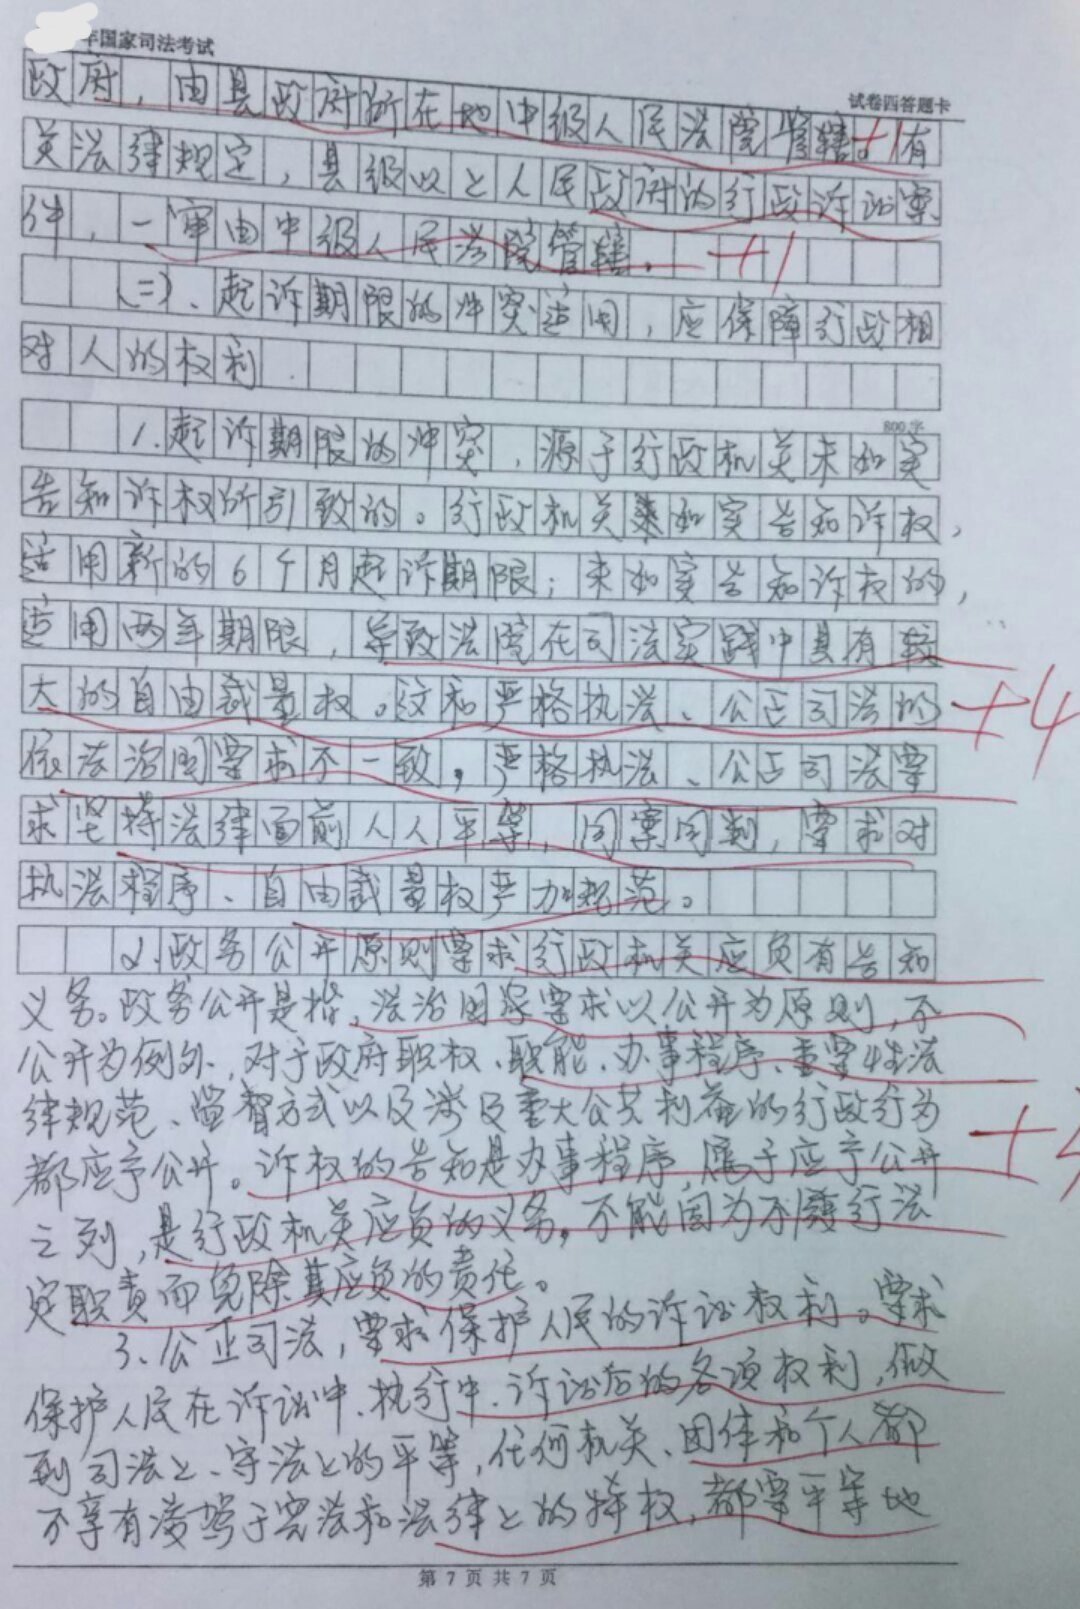 年国家司法考试
试卷四答题卡
政府，由县政府所在地中级人民法院管辖。+1有
关法律规定，县级以上人民政府的行政诉讼案
件，一审由中级人民法院管辖。 +1
(二)、起诉期限的冲突适用，应保障行政相
对人的权利
800字
1.起诉期限的冲突，源于行政机关未如实
告知诉权所引致的。行政机关如实告知诉权，
适用新的6个月起诉期限；未如实告知诉权的，
适用两年期限，导致法院在司法实践中具有较
大的自由裁量权。这和严格执法、公正司法的 +4
依法治国要求不一致，严格执法、公正司法要
求坚持法律面前人人平等，同案同判，要求对
执法程序、自由裁量权严加规范。
2.政务公开原则要求行政机关应负有告知
义务。政务公开是指，法治国家要求以公开为原则，不
公开为例外，对于政府职权、职能、办事程序、重要性法
律规范、监督方式以及涉及重大公共利益的行政行为
都应予公开。诉权的告知是办事程序，属于应予公开 +4
之列，是行政机关应负的义务，不能因为不履行法
定职责而免除其应负的责任。
3、公正司法，要求保护人民的诉讼权利。要求
保护人民在诉讼中、执行中、诉讼后的各项权利，做
到司法上、守法上的平等，任何机关、团体和个人都
不享有凌驾于宪法和法律上的特权，都要平等地
第7页共7页